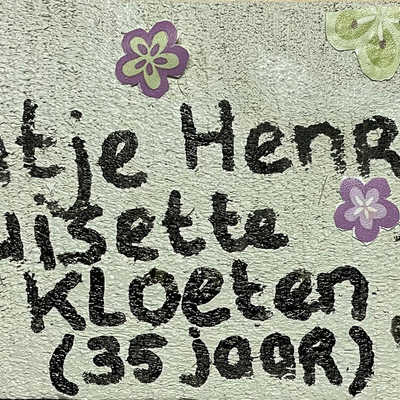 tje Henr
uisette
KLoeten
(35 jaar)